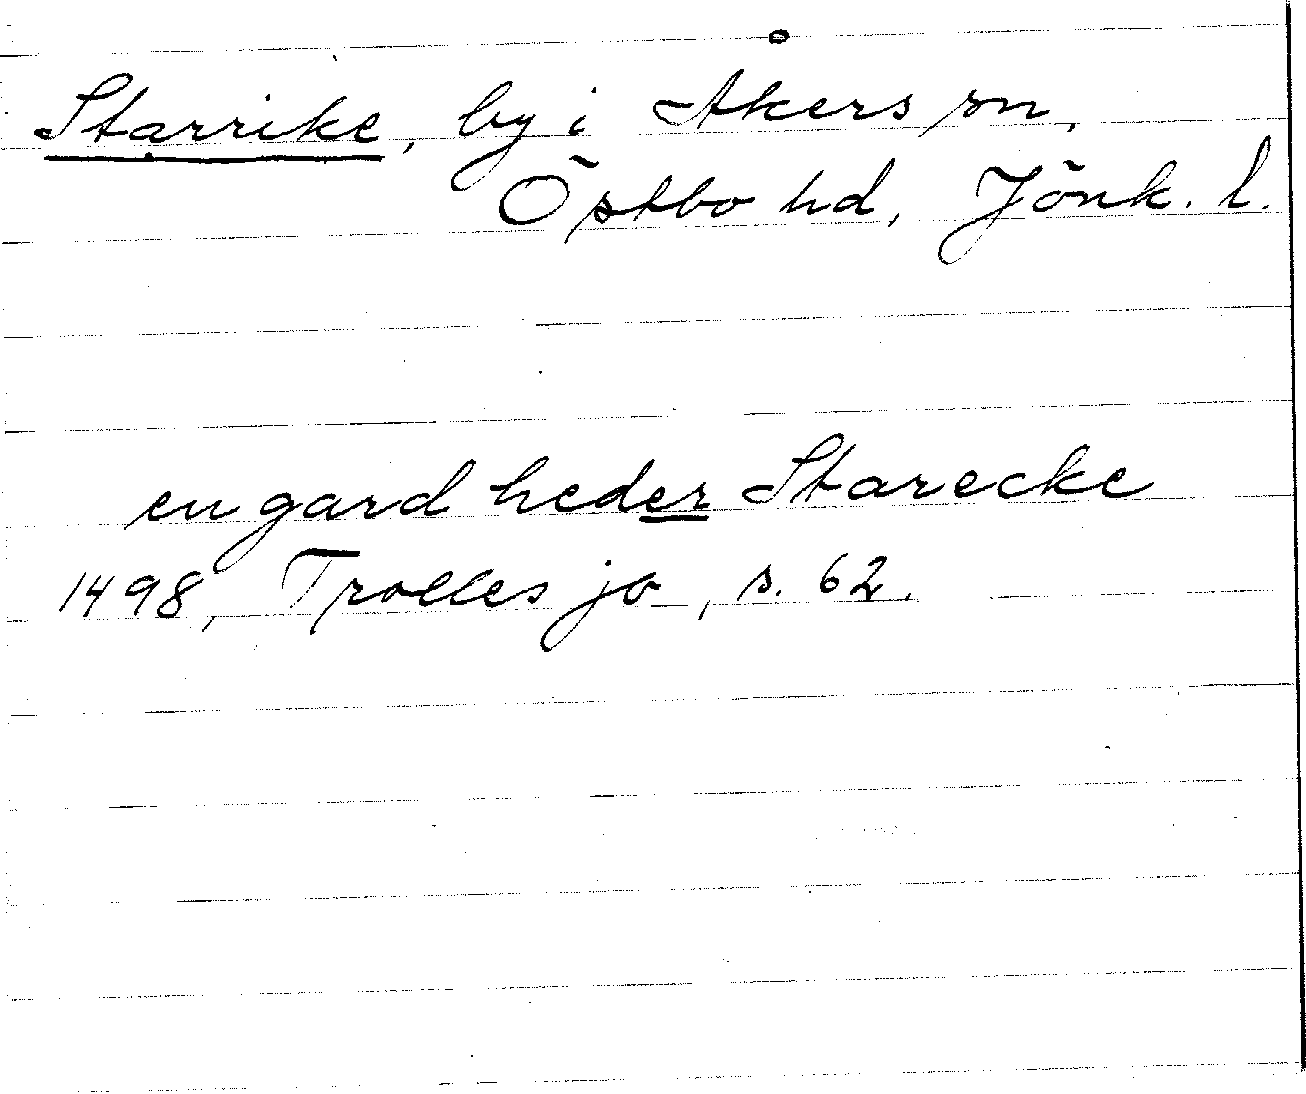 Starrike, by i Åkers sn,
Östbo hd, Jönk. l.
en gard heder Starecke
1498, Trolles jb, s. 62.